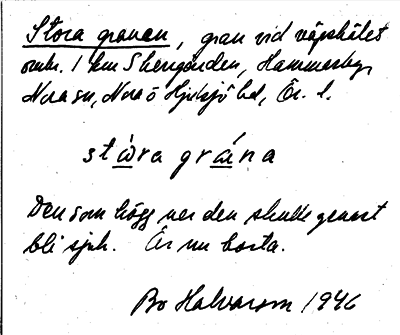 Stora granen, gran vid vägskälet
omkr. 1 km S herrgården, Hammarby,
Nora sn, Nora o Hjulsjö bd, Ör. l.
stɷ̀ra grána
Den som högg ner den skulle genast
bli sjuk. Är nu borta.
Bo Halvarson 1946